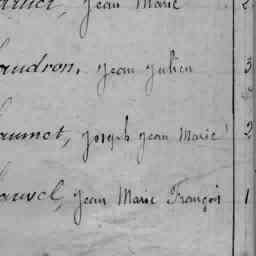 Jean Marie 2
audron, Jean Julien 3
aumet, Joseph Jean Marie 2
auvel, Jean Marie François 1